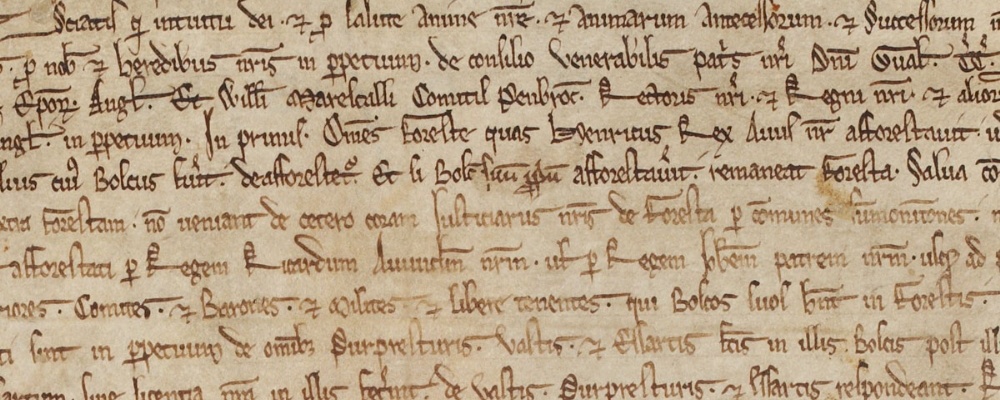 Sciatis q̄ intuitu dei ⁊ ꝑ salute anime nr̄e ⁊ animarum antecessorum ⁊ successorum
ꝑ nob̄ ⁊ heredibus nr̄is in ꝑpetuum de consilio venerabilis patͥs nr̄i Dn̄i Gual.
Ep̄orꝫ Angl. Et Willi Marescalli Comitis Penbroc̄ Rectoris nr̄i ⁊ Regni nr̄i ⁊ alior
ngl. in ꝑpetuum. In primis Om̄es foreste quas Henricus Rex Auus nr̄ afforestauit
lius cui9 Boscus fuit deafforestet᷑. Et si Bosc̄ suū ꝓpͥū afforestau͛it remaneat foresta Salua co
forestam nō ueniant de cetero coram Justiciariis nr̄is de foresta ꝑ cōmunes sūmonitiones
afforestati ꝑ Regem Ricardum Auunclm̄ nr̄m ul̄ ꝑ Regem Joh̄em patrem nr̄m usqꝫ ad
riores Comites ⁊ Barones ⁊ Milites ⁊ libere tenentes qui Boscos suos hn̄t in forestis
ti sunt in ꝑpetuum de omībꝫ Purpresturis Vastis ⁊ Essartis fc̄is in illis Boscis post ill
sine licentia nr̄a in illis fec͛int de Vastis Purpresturis ⁊ Essartis respondeant